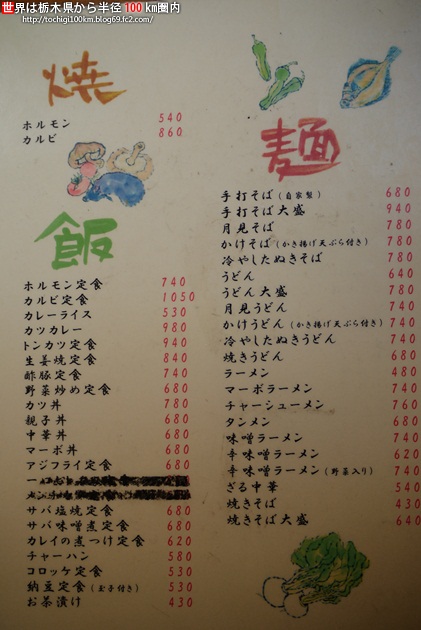 世界は栃木県から半径100km圏内
http://tochigi100km.blog69.fc2.com/
焼
ホルモン 540
カルビ 860
飯
ホルモン定食 740
カルビ定食 1050
カレーライス 530
カツカレー 980
トンカツ定食 940
生姜焼定食 840
酢豚定食 740
野菜炒め定食 680
カツ丼 780
親子丼 680
中華丼 680
マーボ丼 680
アジフライ定食 680
サバ塩焼定食 680
サバ味噌煮定食 680
カレイの煮つけ定食 620
チャーハン 580
コロッケ定食 530
納豆定食(玉子付き) 530
お茶漬け 430
麺
手打そば(自家製) 680
手打そば大盛 940
月見そば 780
かけそば(かき揚げ天ぷら付き) 780
冷やしたぬきそば 780
うどん 640
うどん大盛 780
月見うどん 740
かけうどん(かき揚げ天ぷら付き) 740
冷やしたぬきうどん 740
焼きうどん 680
ラーメン 480
マーボラーメン 740
チャーシューメン 760
タンメン 680
味噌ラーメン 740
辛味噌ラーメン 620
辛味噌ラーメン(野菜入り) 740
ざる中華 540
焼きそば 430
焼きそば大盛 640